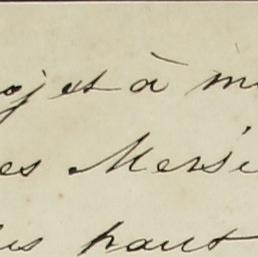 ojet à m
es Mersi
us haut